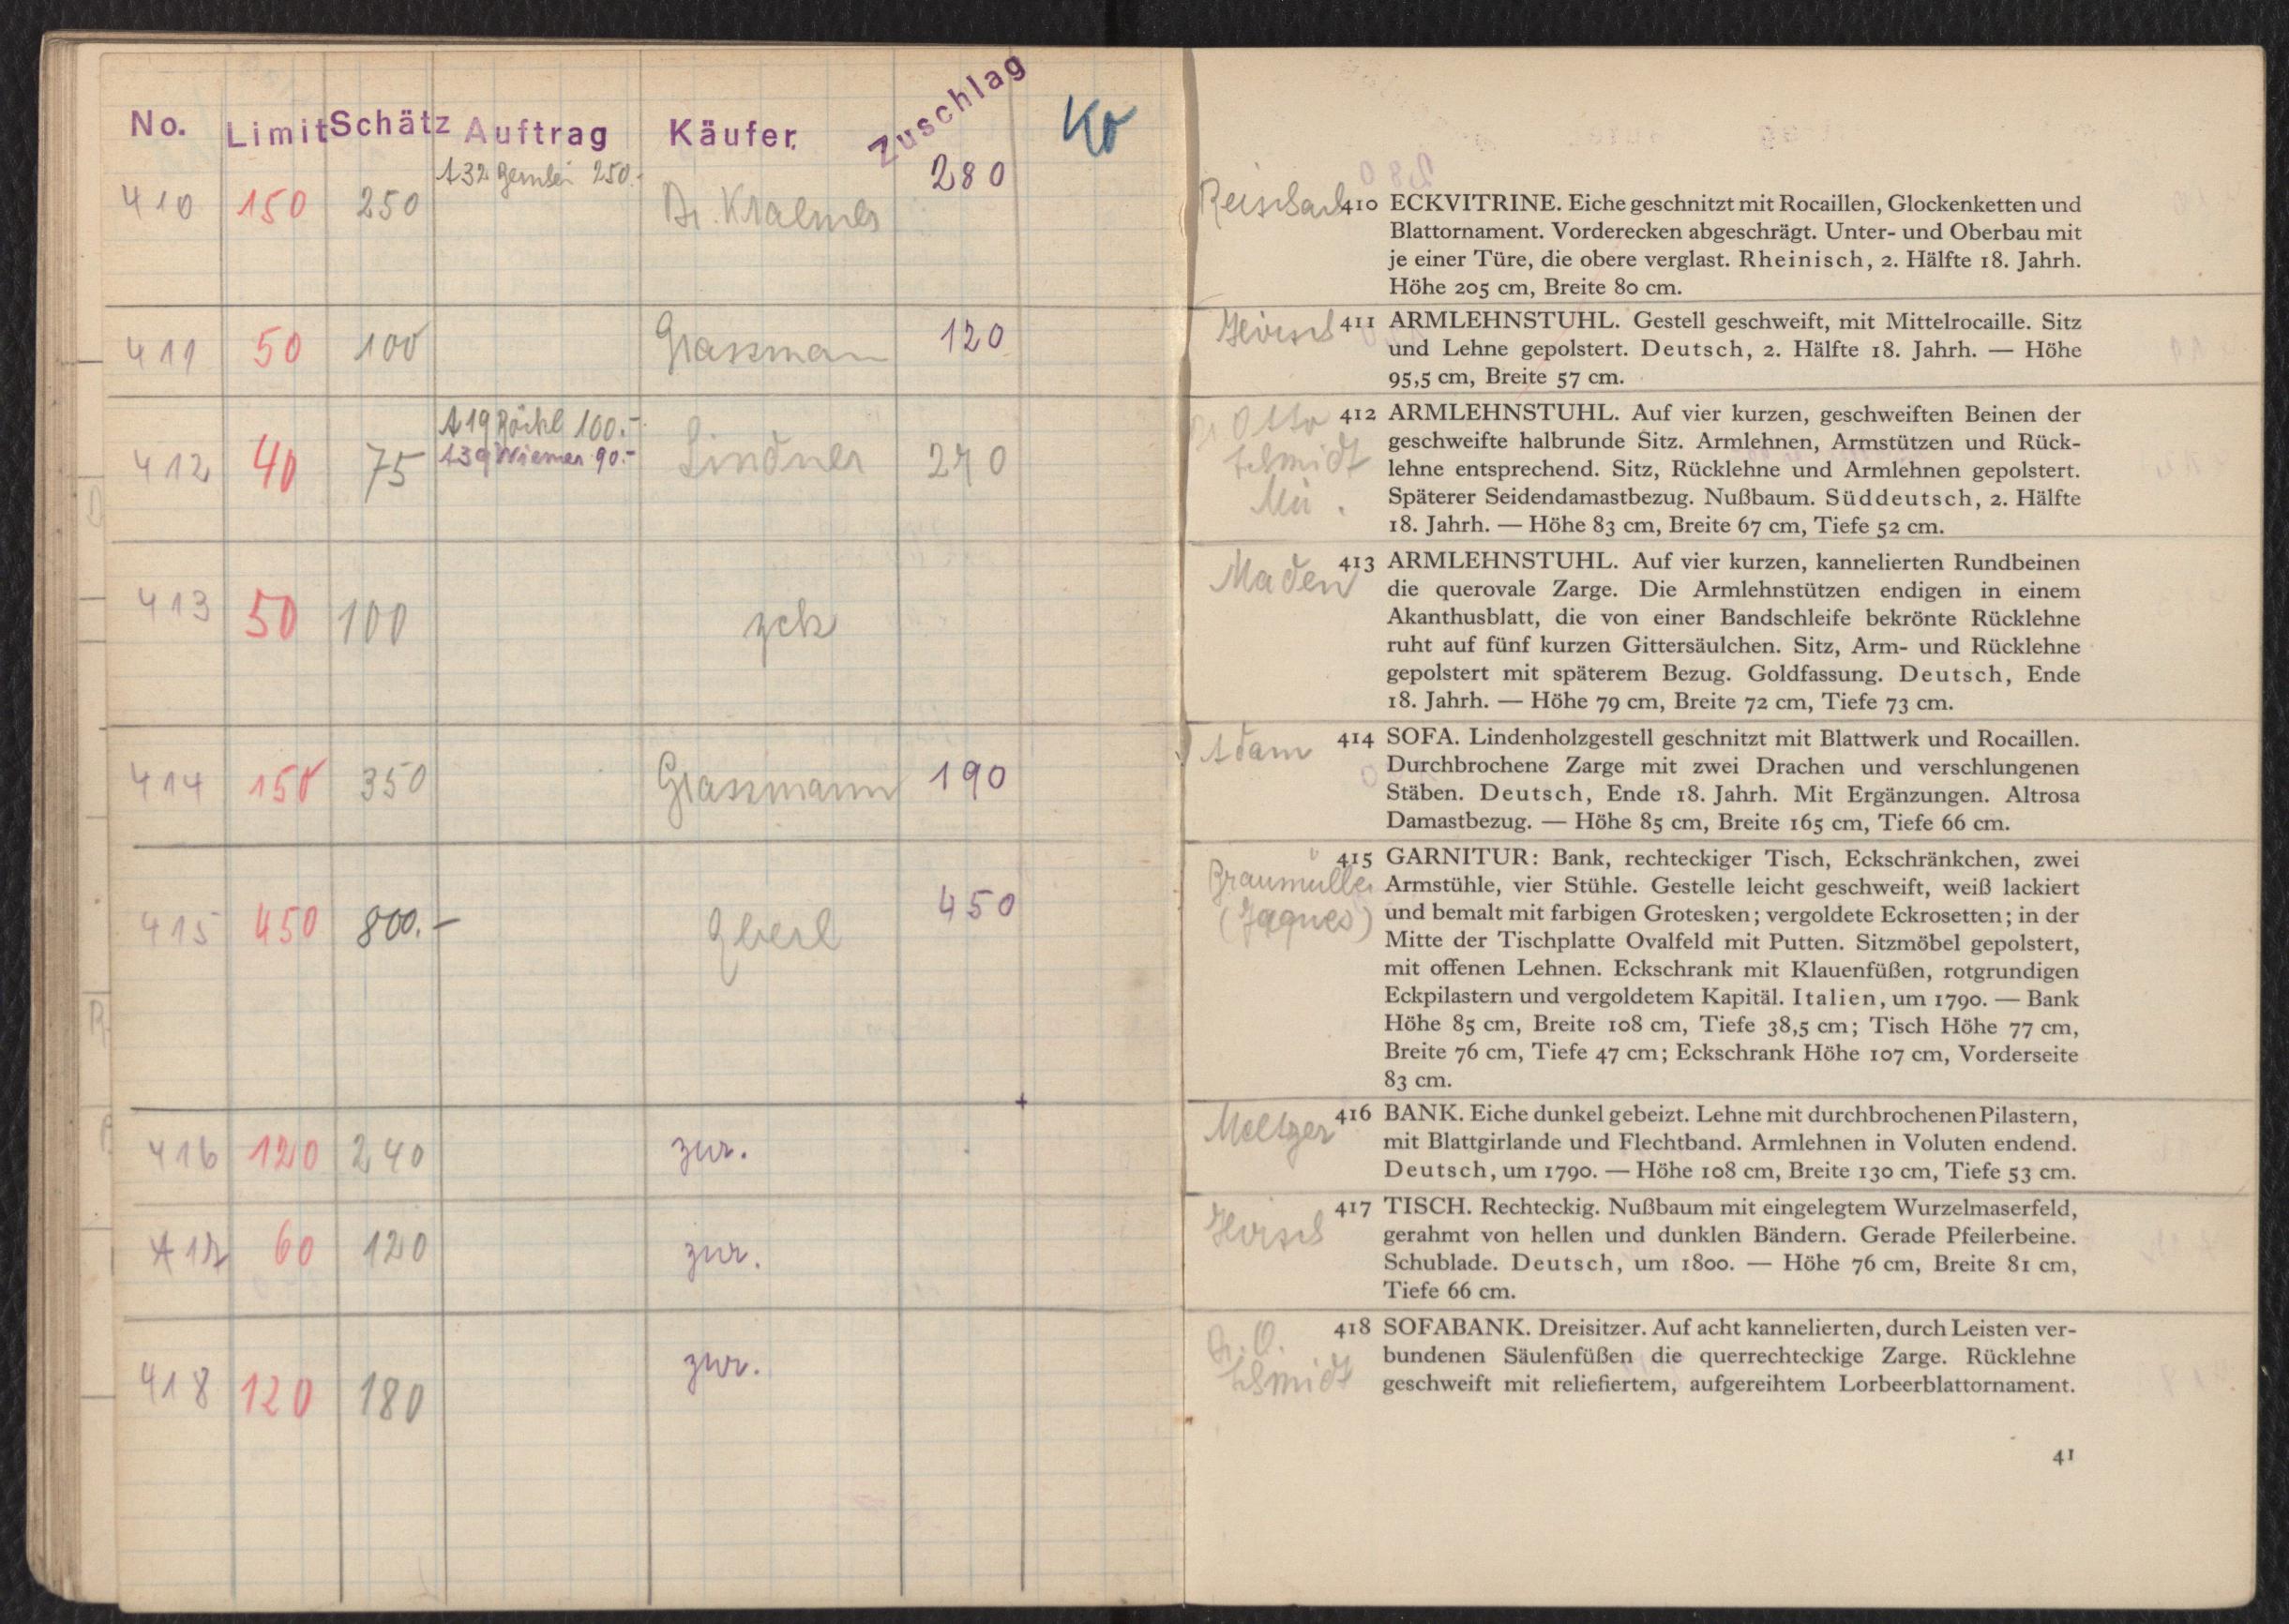 No. Limit Schätz Auftrag Käufer. Zuschlag Ko
A32 250.-
410 150 250 Dr. Kraemer 280
411 50 100 Grassmann 120
A19 Röckl 100.-
412 40 75 A39 Wiemer 90.- Lindner 270
413 50 100 zck
414 150 350 Grassmann 190
415 450 800.- Eberl 450
416 120 240 zur.
417 60 120 zur.
418 120 180 zur.
Reischach 410 ECKVITRINE. Eiche geschnitzt mit Rocaillen, Glockenketten und
Blattornament. Vorderecken abgeschrägt. Unter- und Oberbau mit
je einer Türe, die obere verglast. Rheinisch, 2. Hälfte 18. Jahrh.
Höhe 205 cm, Breite 80 cm.
Hirsch 411 ARMLEHNSTUHL. Gestell geschweift, mit Mittelrocaille. Sitz
und Lehne gepolstert. Deutsch, 2. Hälfte 18. Jahrh. — Höhe
95,5 cm, Breite 57 cm.
Dr. Otto 412 ARMLEHNSTUHL. Auf vier kurzen, geschweiften Beinen der
Schmidt geschweifte halbrunde Sitz. Armlehnen, Armstützen und Rück-
lehne entsprechend. Sitz, Rücklehne und Armlehnen gepolstert.
Mü. Späterer Seidendamastbezug. Nußbaum. Süddeutsch, 2. Hälfte
18. Jahrh. — Höhe 83 cm, Breite 67 cm, Tiefe 52 cm.
Maden 413 ARMLEHNSTUHL. Auf vier kurzen, kannelierten Rundbeinen
die querovale Zarge. Die Armlehnstützen endigen in einem
Akanthusblatt, die von einer Bandschleife bekrönte Rücklehne
ruht auf fünf kurzen Gittersäulchen. Sitz, Arm- und Rücklehne
gepolstert mit späterem Bezug. Goldfassung. Deutsch, Ende
18. Jahrh. — Höhe 79 cm, Breite 72 cm, Tiefe 73 cm.
Adam 414 SOFA. Lindenholzgestell geschnitzt mit Blattwerk und Rocaillen.
Durchbrochene Zarge mit zwei Drachen und verschlungenen
Stäben. Deutsch, Ende 18. Jahrh. Mit Ergänzungen. Altrosa
Damastbezug. — Höhe 85 cm, Breite 165 cm, Tiefe 66 cm.
415 GARNITUR: Bank, rechteckiger Tisch, Eckschränkchen, zwei
Braumüller Armstühle, vier Stühle. Gestelle leicht geschweift, weiß lackiert
(Jaques) und bemalt mit farbigen Grotesken; vergoldete Eckrosetten; in der
Mitte der Tischplatte Ovalfeld mit Putten. Sitzmöbel gepolstert,
mit offenen Lehnen. Eckschrank mit Klauenfüßen, rotgrundigen
Eckpilastern und vergoldetem Kapitäl. Italien, um 1790. — Bank
Höhe 85 cm, Breite 108 cm, Tiefe 38,5 cm; Tisch Höhe 77 cm,
Breite 76 cm, Tiefe 47 cm; Eckschrank Höhe 107 cm, Vorderseite
83 cm.
Meltzer 416 BANK. Eiche dunkel gebeizt. Lehne mit durchbrochenen Pilastern,
mit Blattgirlande und Flechtband. Armlehnen in Voluten endend.
Deutsch, um 1790. — Höhe 108 cm, Breite 130 cm, Tiefe 53 cm.
Hirsch 417 TISCH. Rechteckig. Nußbaum mit eingelegtem Wurzelmaserfeld,
gerahmt von hellen und dunklen Bändern. Gerade Pfeilerbeine.
Schublade. Deutsch, um 1800. — Höhe 76 cm, Breite 81 cm,
Tiefe 66 cm.
Dr. O. 418 SOFABANK. Dreisitzer. Auf acht kannelierten, durch Leisten ver-
Schmidt bundenen Säulenfüßen die querrechteckige Zarge. Rücklehne
geschweift mit reliefiertem, aufgereihtem Lorbeerblattornament.
41